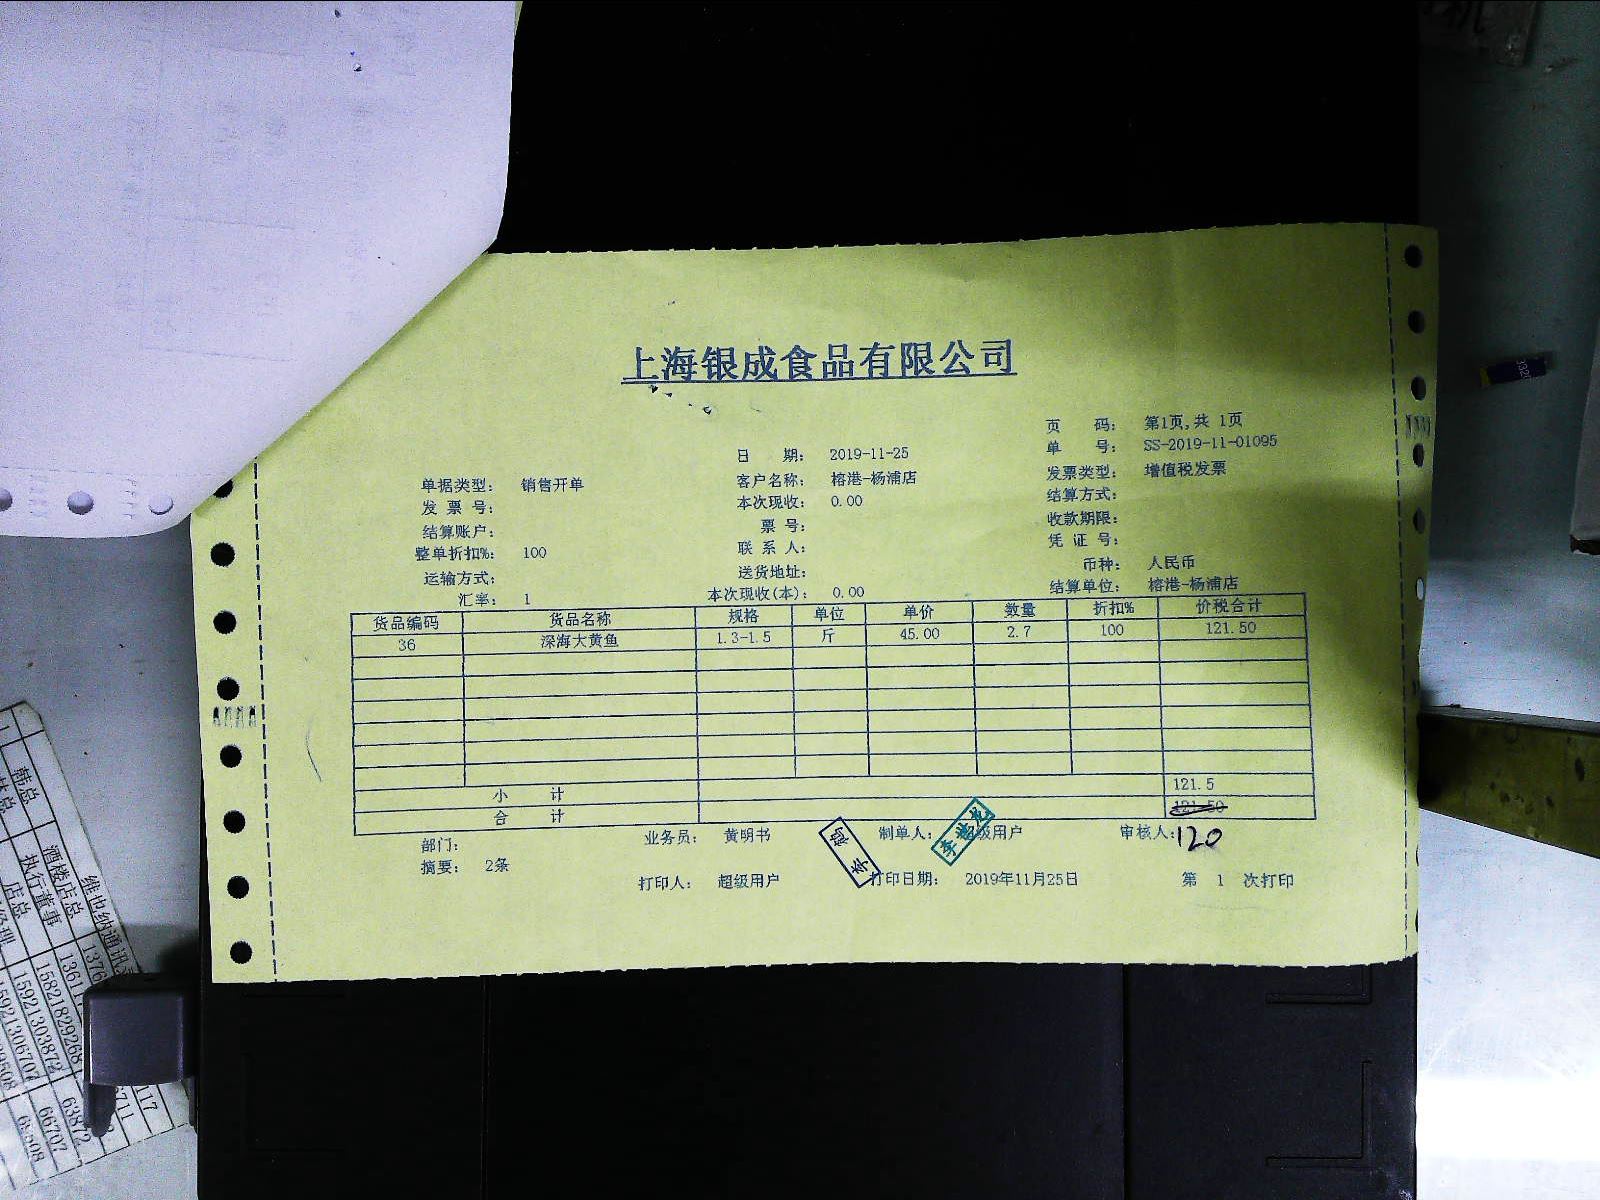 上海银成食品有限公司
页 码： 第1页,共 1页
日 期： 2019-11-25 单 号： SS-2019-11-01095
单据类型： 销售开单 客户名称： 榕港-杨浦店 发票类型： 增值税发票
发 票 号： 本次现收： 0.00 结算方式：
结算账户： 票 号： 收款期限：
整单折扣%： 100 联 系 人： 凭 证 号：
运输方式： 送货地址： 币种： 人民币
汇率： 1 本次现收(本)： 0.00 结算单位： 榕港-杨浦店
货品编码 货品名称 规格 单位 单价 数量 折扣% 价税合计
36 深海大黄鱼 1.3-1.5 斤 45.00 2.7 100 121.50
小 计 121.5
合 计 121.50
部门： 业务员： 黄明书 制单人： 超级用户 审核人： 120
摘要： 2条 打印人： 超级用户 打印日期： 2019年11月25日 第 1 次打印
韩总
酒楼店总
执行董事
店总
维也纳通讯
13761
15821829268
15921303872
15921306707
63872
66707